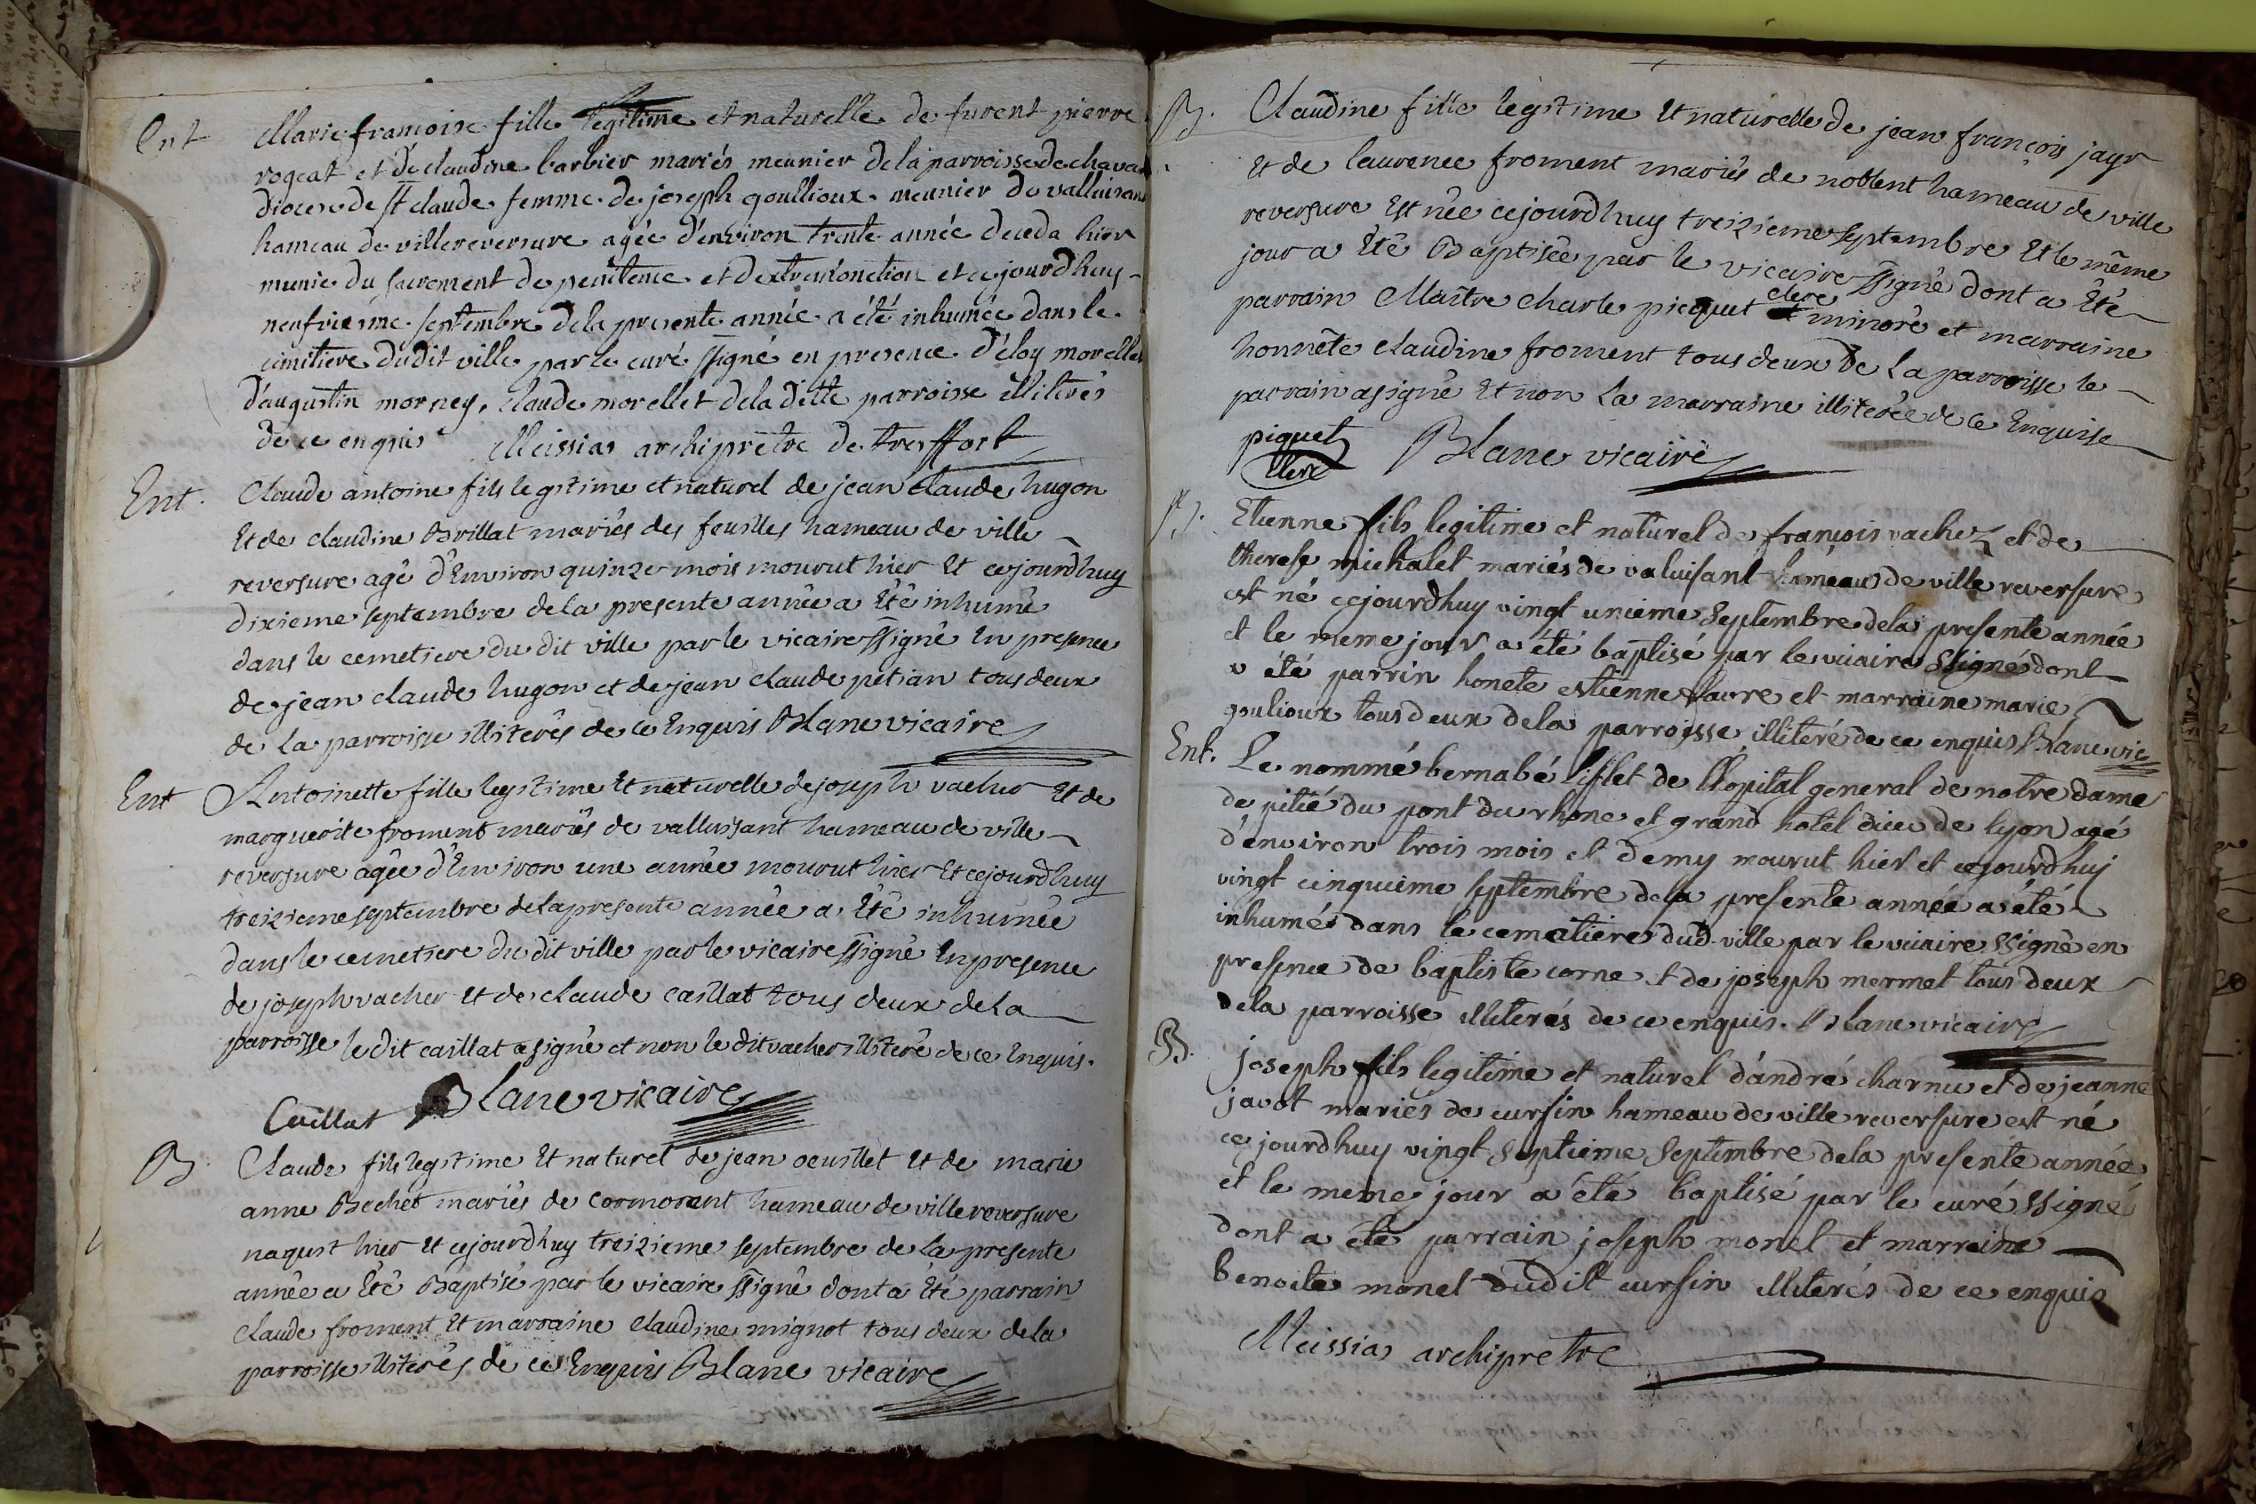 Ent Marie francoise fille legitime et naturelle de furent pierre
rogeat et de claudine barbier mariés meunier de la parroisse de chavan
diocese de st claude femme de joseph goullioux meunier de valluisan
hameau de villereversure agée d'environ trente année deceda hier
munie du sacrement de penitence et d'extremonction et cejourdhuy
neufvieme septembre de la presente année a été inhumée dans le
cimitiere dudit ville par le curé ssigné en presence d'eloy morellet
d'augustin morney, claude morellet de la ditte parroisse illiterés
de ce enquis Meissias archiprêtre de treffort
Ent. Claude antoine fils legitime et naturel de jean claude hugon
Et de claudine Brillat mariés des feuilles hameau de ville
reversure agé d'Environ quinze mois mourut hier Et cejourdhuy
dixieme septembre de la presente année a Eté inhumé
dans le cemetiere du dit ville par le vicaire ssigné En presence
de jean claude hugon et de jean claude petian tous deux
de La parroisse illiterés de ce Enquis Blanc vicaire
Ent Antoinette fille legitime Et naturelle de joseph vacher Et de
marguerite froment mariés de valluissant hameau de ville
reversure agée d'Environ une année mourut hier Et cejourdhuy
treizieme septembre de la presente année a Eté inhumée
dans le cemetiere du dit ville par le vicaire ssigné En presence
de joseph vacher Et de claude caillat tous deux de La
parroisse le dit caillat a signé et non le dit vacher illiteré de ce Enquis.
Caillat Blanc vicaire
B Claude fils legitime Et naturel de jean oeuillet Et de marie
anne Bochet mariés de cormorant hameau de villereversure
naquit hier Et cejourd'huy treizieme septembre de La presente
année a Eté Baptisé par le vicaire ssigné dont a Eté parrain
claude froment Et marraine claudine mignot tous deux de la
parroisse illiterés de ce Enquis Blanc vicaire
B. Claudine fille legitime Et naturelle de jean françois jayr
Et de laurence froment mariés de noblent hameau de ville
reversure Est née cejourdhuy treizieme septembre Et le même
jour a Eté Baptisée par le vicaire ssigné dont a Eté
parrain Maître charle picquet clerc minoré et marraine
honnête claudine froment tous deux de La parroisse le
parrain a signé Et non La marraine illiterée de ce Enquise
piquet clerc Blanc vicaire
B. Etienne fils legitime et naturel de françois vachez et de
therese michalet mariés de valuisant hameau de ville reversure
est né cejourdhuy vingt unieme septembre de la presente année
et le meme jour a été baptisé par le vicaire ssigné dont
a été parrin honete estienne favre et marraine marie
goulioux tous deux de la parroisse illiteré de ce enquis Blanc vic
Ent. Le nommé bernabé lifflet de l'hopital general de notre dame
de pitié du pont du rhone et grand hotel dieu de lyon agé
d'environ trois mois et demy mourut hier et cejourdhuj
vingt cinquieme septembre de la presente année a été
inhumé dans le cemetiere dud. ville par le vicaire ssigné en
presence de baptiste corne et de joseph mermet tous deux
de la parroisse illiterés de ce enquis. Blanc vicaire
B. joseph fils legitime et naturel d'andré charnu et de jeanne
javot mariés de cursin hameau de ville reversure est né
ce jourdhuy vingt septieme septembre de la presente année
et le meme jour a été baptisé par le curé ssigné
dont a été parrain joseph monet et marraine
benoite monet dudit cursin illiterés de ce enquis
Meissias archiprêtre